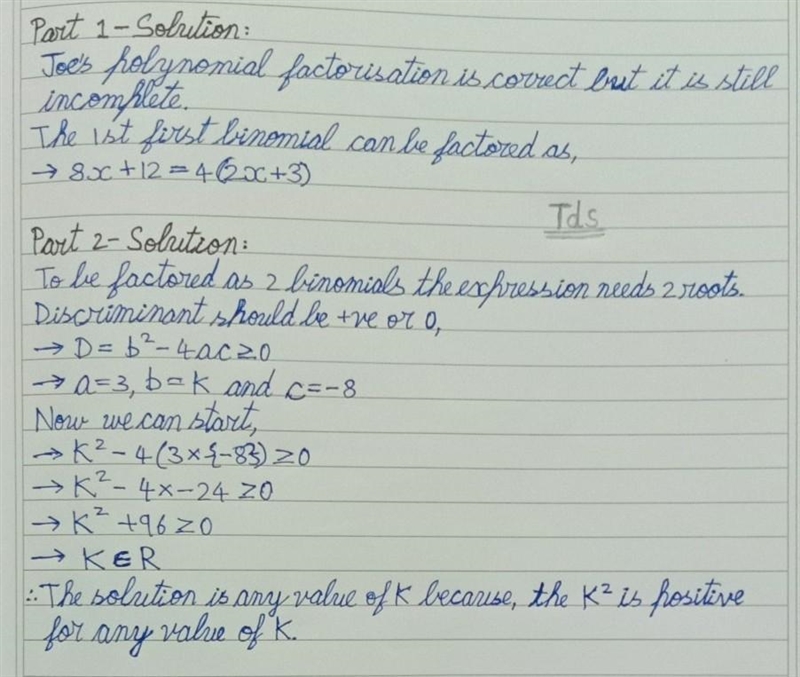 Part 1 - Solution:
Joe's polynomial factorisation is correct but it is still
incomplete.
The 1st first binomial can be factored as,
→ 8x + 12 = 4(2x+3)
Tds
Part 2 - Solution:
To be factored as 2 binomials the expression needs 2 roots.
Discriminant should be +ve or 0,
→ D = b² - 4ac ≥ 0
→ a=3, b=K and c=-8
Now we can start,
→ K² - 4(3×{-8}) ≥ 0
→ K² - 4×-24 ≥ 0
→ K² + 96 ≥ 0
→ K ∈ R
∴ The solution is any value of K because, the K² is positive
for any value of K.